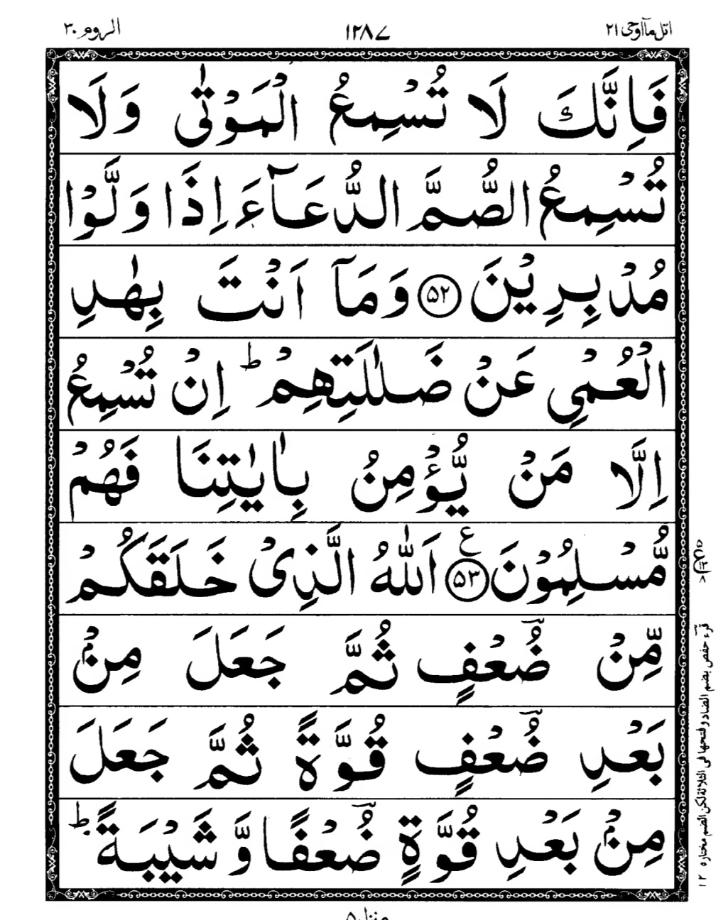 اتل مآ اوحی ۲۱
۱۲۸۷
الروم ۳۰
فَاِنَّكَ لَا تُسْمِعُ الْمَوْتٰى وَلَا
تُسْمِعُ الصُّمَّ الدُّعَآءَ اِذَا وَلَّوْا
مُدْبِرِيْنَ ﴿۵۲﴾ وَمَآ اَنْتَ بِهٰدِ
الْعُمْىِ عَنْ ضَلٰلَتِهِمْ ؕ اِنْ تُسْمِعُ
اِلَّا مَنْ يُّؤْمِنُ بِاٰيٰتِنَا فَهُمْ
مُّسْلِمُوْنَ ﴿۵۳﴾ ع اَللّٰهُ الَّذِىْ خَلَقَكُمْ
مِّنْ ضُعْفٍ ثُمَّ جَعَلَ مِنْۢ
بَعْدِ ضُعْفٍ قُوَّةً ثُمَّ جَعَلَ
مِنْۢ بَعْدِ قُوَّةٍ ضُعْفًا وَّشَيْبَةً ؕ
قرء حفص بضم الضاد و فتحها فی الثلاثة لكن الضم مختاره ۱۲
منزل ۵